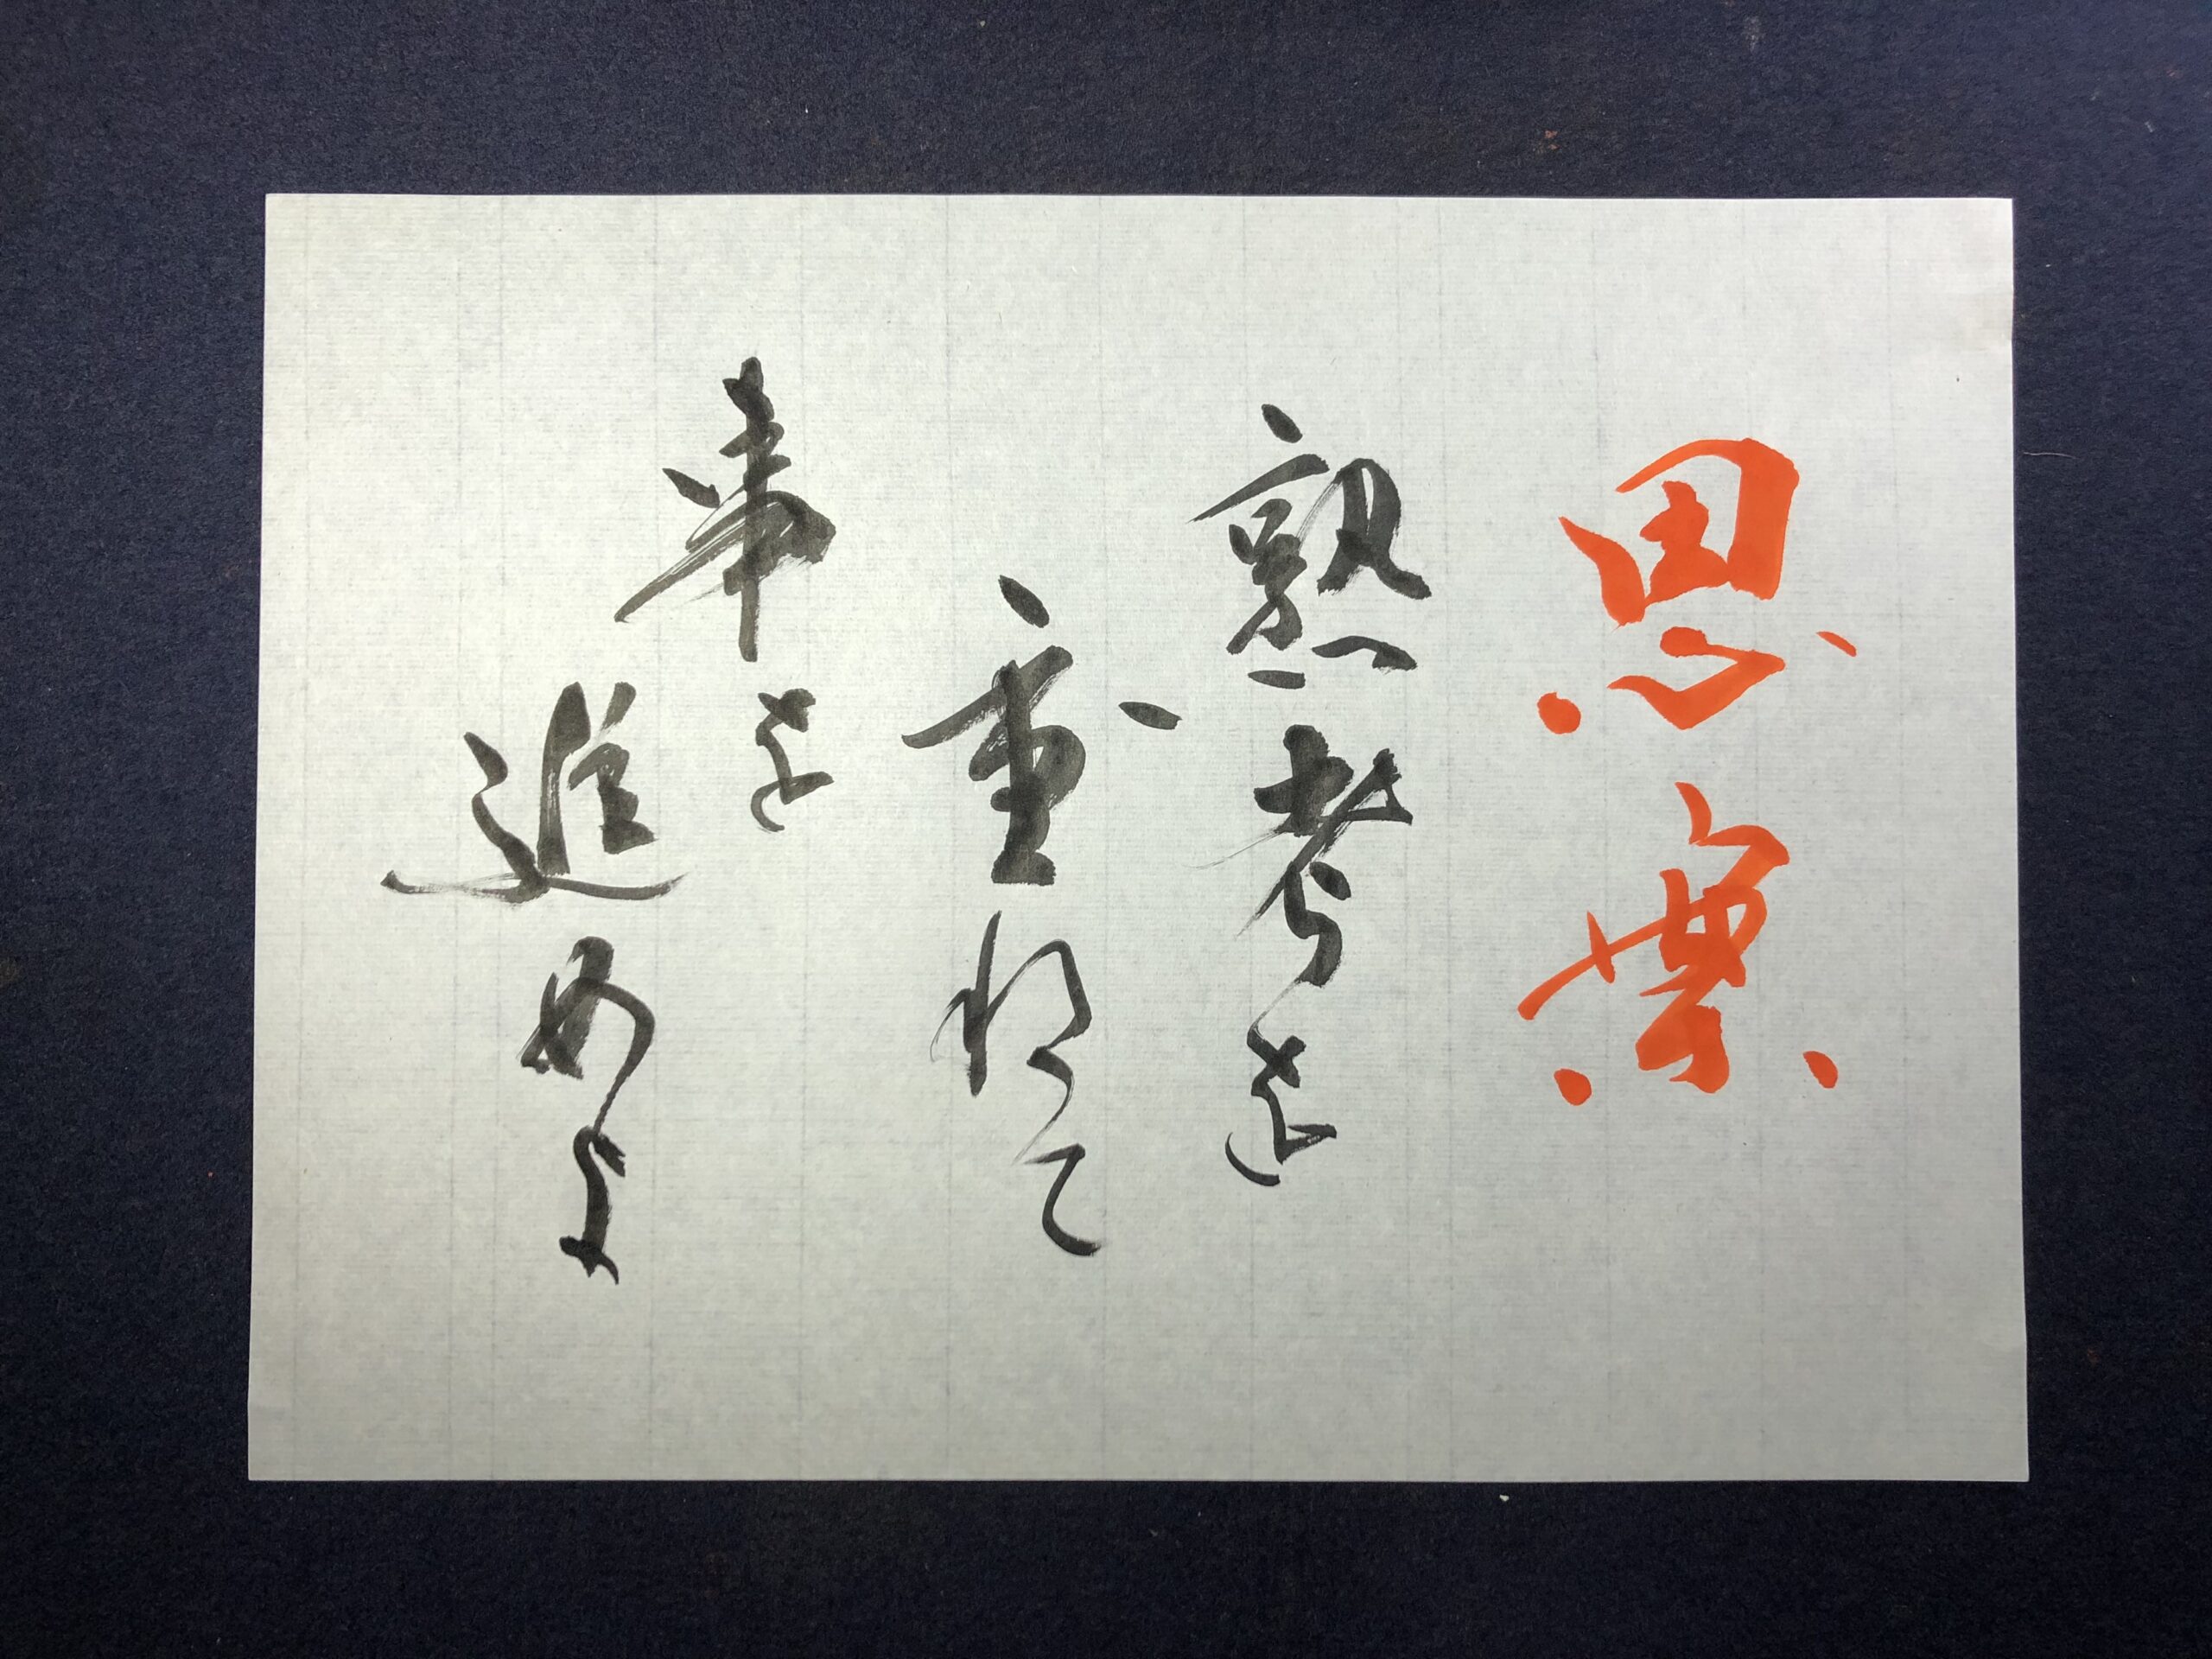 思案
熟考を
重ねて
事を
進めよ